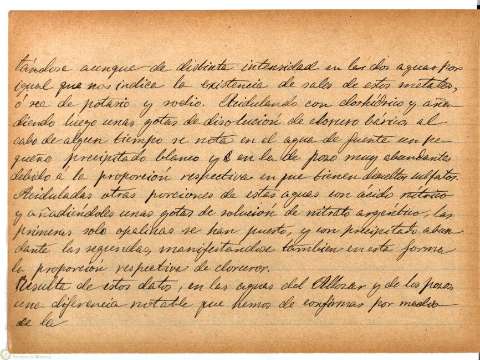 tándose aunque de distinta intensidad en las dos aguas por
igual que nos indica la existencia de sales de estos metales,
ó sea de potasio y sodio. Acidulando con clorhídrico y aña
diendo luego unas gotas de disolución de cloruro bárico al
cabo de algun tiempo se nota en el agua de fuente un pe
queño precipitado blanco y en la de pozo muy abundante
debido a la proporción respectiva en que tienen disueltos sulfatos.
Aciduladas otras porciones de estas aguas con ácido nítrico
y añadiéndoles unas gotas de solución de nitrato argéntico, las
primeras solo opalinas se han puesto, y con precipitado abun
dante las segundas, manifestandose tambien en esta forma
la proporción respectiva de cloruros.
Resulta de estos datos, en las aguas del Allozar y de los pozos
una diferencia notable que hemos de confirmar por medio
de la